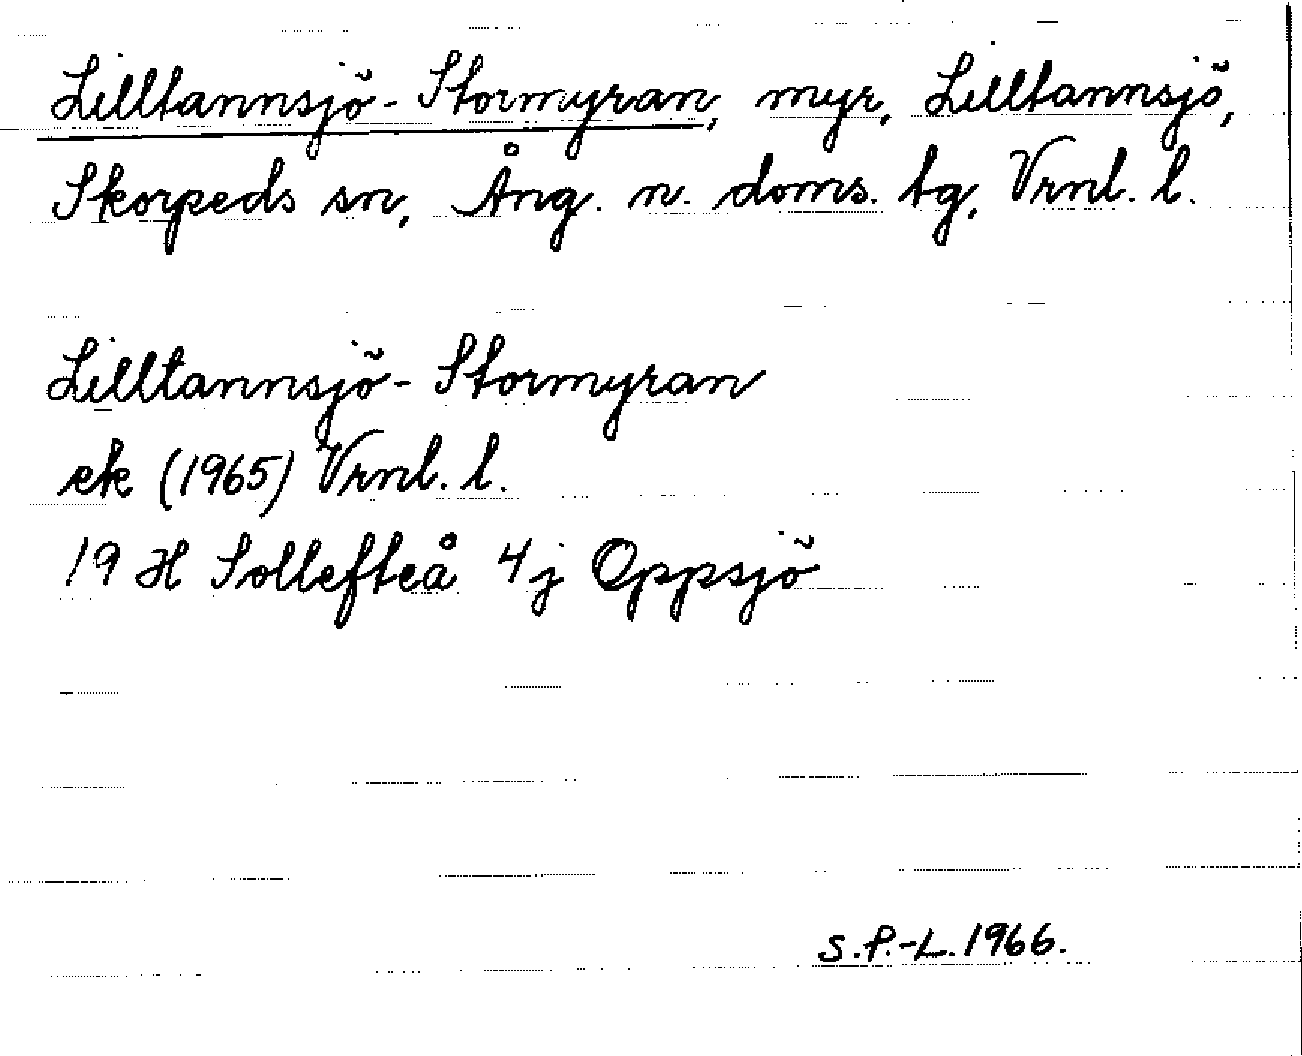 Lilltannsjö-Stormyran, myr, Lilltannsjö,
Skorpeds sn, Ång. n. doms. tg, Vrnl. l.
Lilltannsjö-Stormyran
ek (1965) Vrnl. l.
19 H Sollefteå 4j Oppsjö
S.P.-L. 1966.